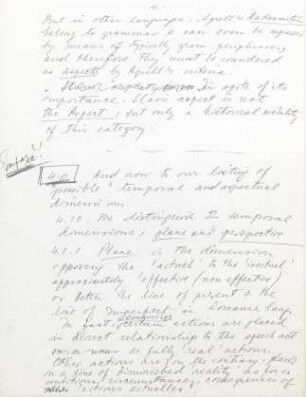 But in other languages, Agrell's Aktionsarten
belong to grammar & can even be expressed
by means of typically gram. periphrases
and therefore they must be considered
as aspects by Agrell's criteria.
In spite of its
importance, Slavic aspect is not
the Aspect, but only a historical modality
of this category.
4.0. And now to our listing of
possible temporal and aspectual
dimensions.
4.10. We distinguish 2 temporal
dimensions, plane and perspective
4.1.1 Plane is the dimension
opposing the "actual" to the "inactual"
approximately effective (non effective)
or better the line of present & the
line of imperfect in Romance lang.
In fact, certain actions are placed
in direct relationship to the speech act
as fully 'real' actions.
Other actions are, on the contrary, placed
on a line of diminished reality, as for ex.
conditions, circumstances, consequences of
other actions